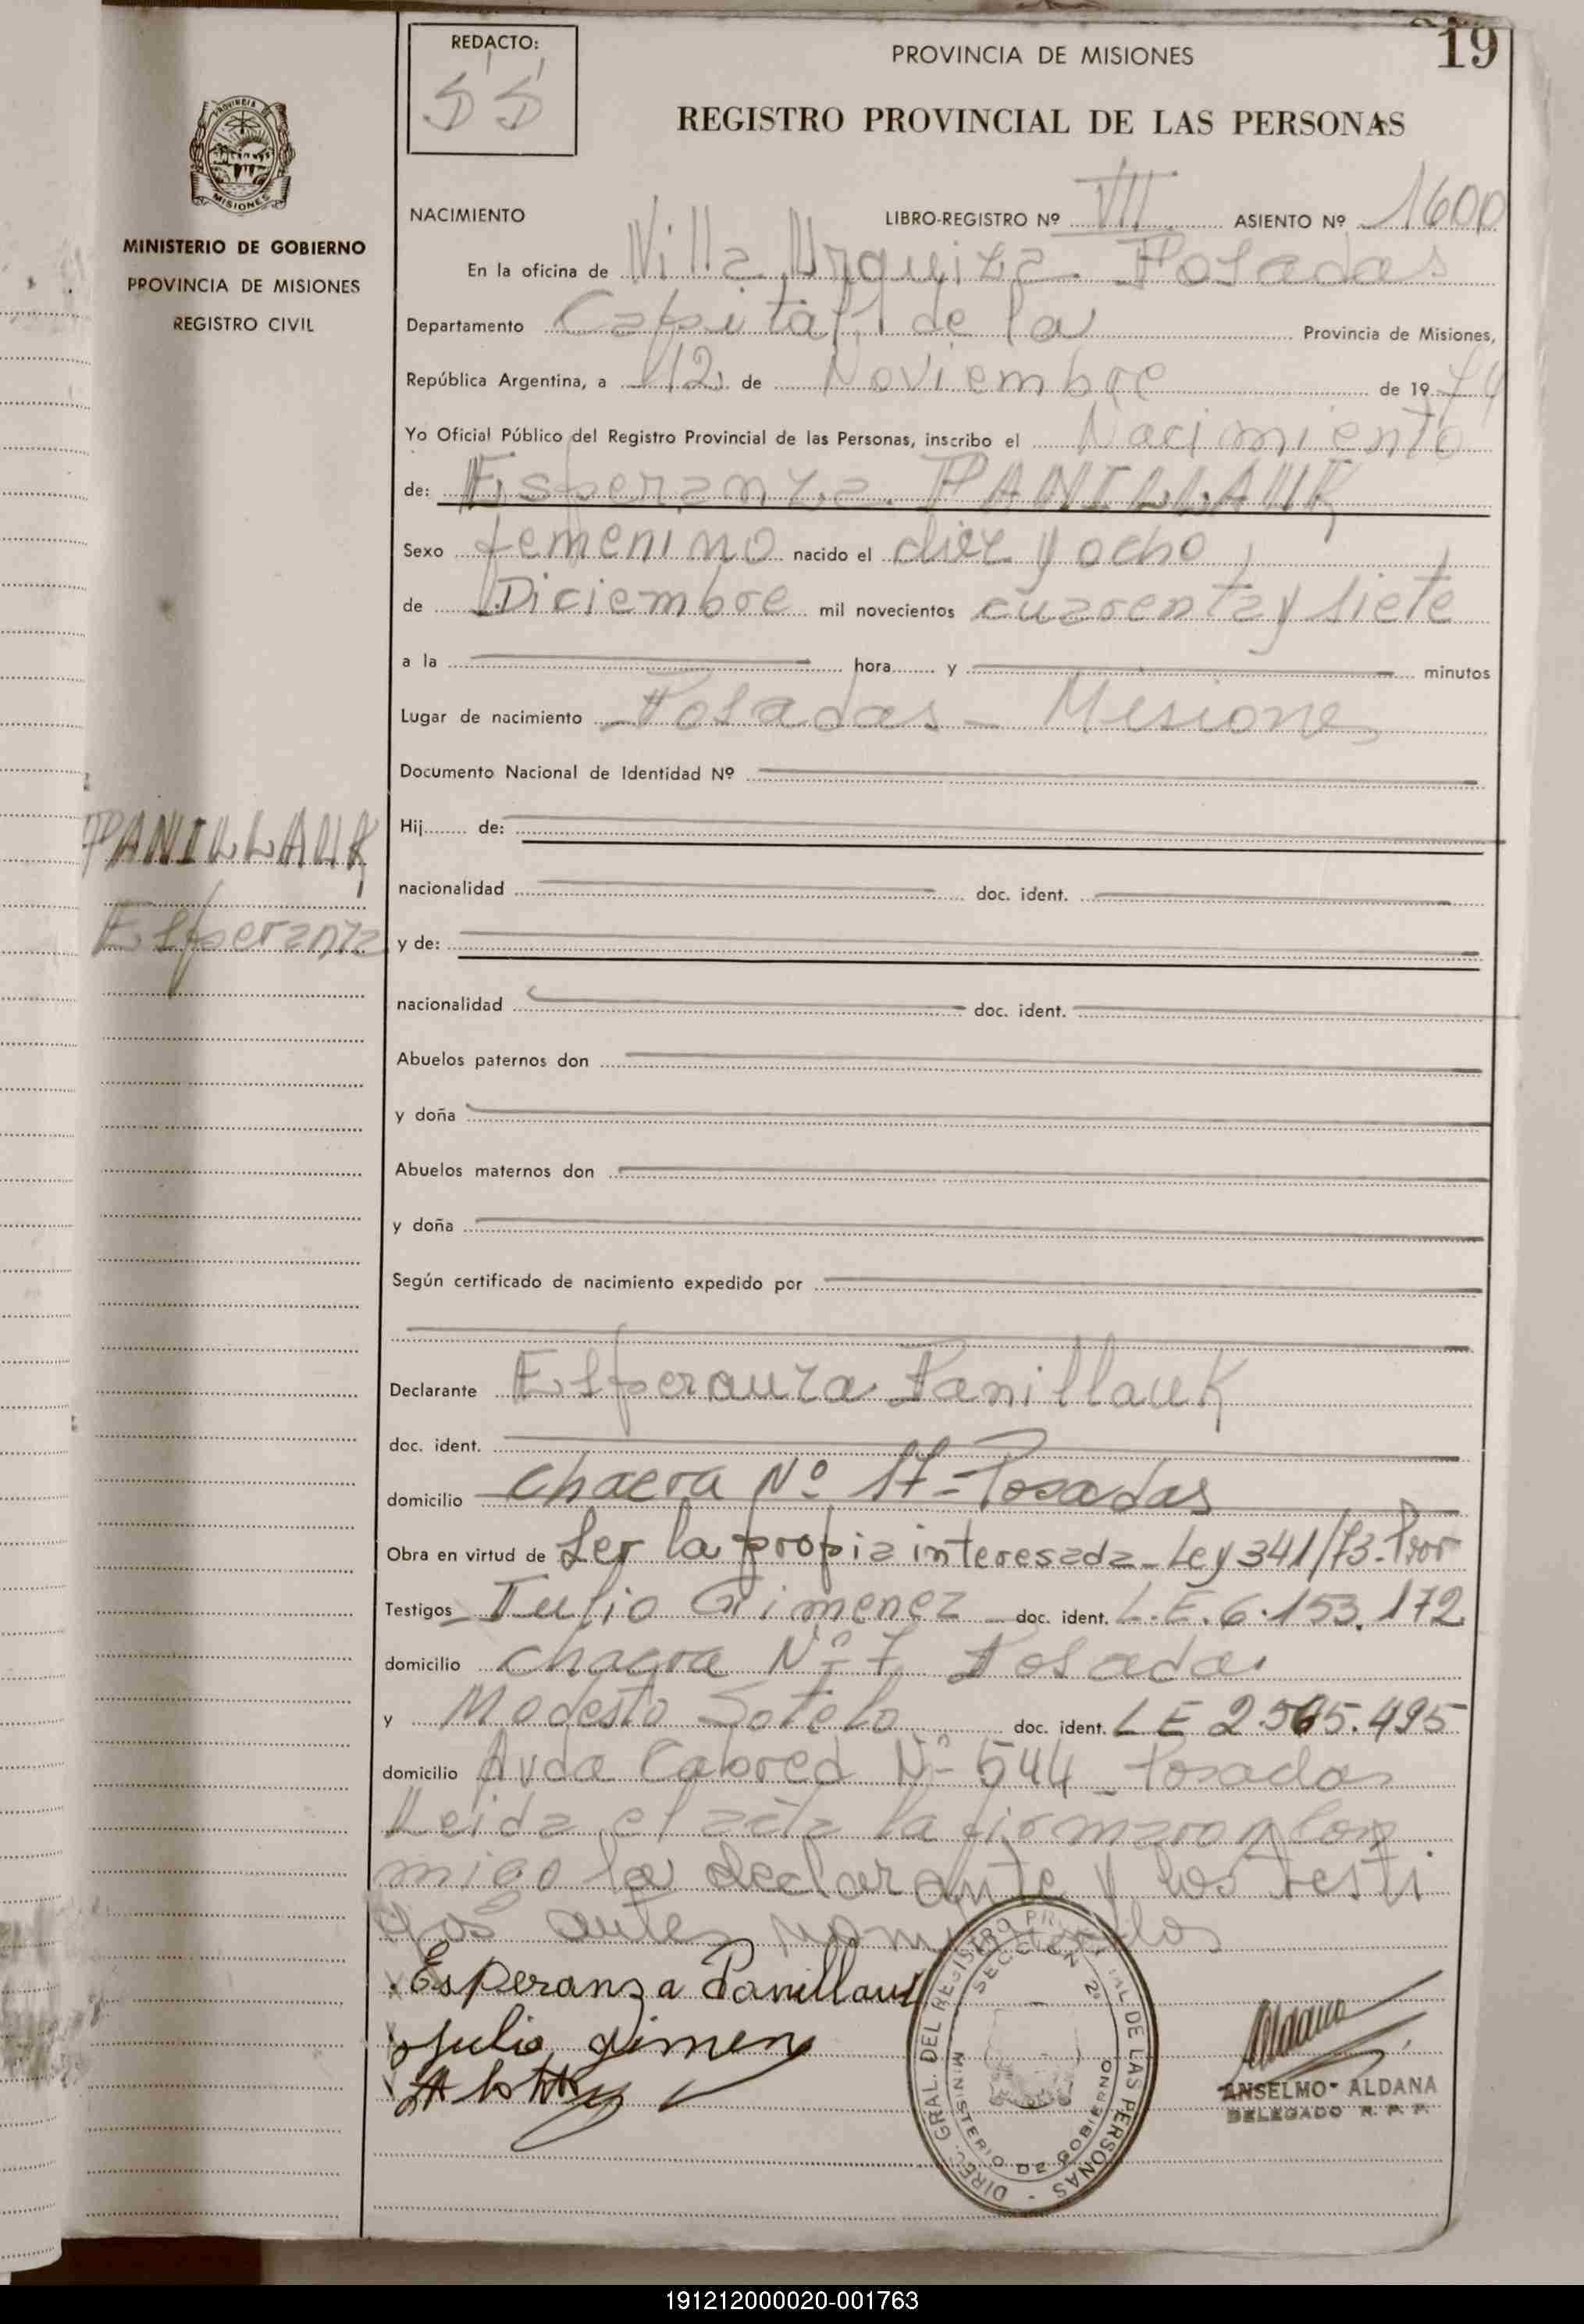 REDACTO:
PROVINCIA DE MISIONES
19
REGISTRO PROVINCIAL DE LAS PERSONAS
NACIMIENTO LIBRO-REGISTRO Nº VII ASIENTO Nº 1600
En la oficina de Villa Urquiza. Posadas
Departamento Capital de la Provincia de Misiones,
República Argentina, a 12 de Noviembre de 1974
Yo Oficial Público del Registro Provincial de las Personas, inscribo el Nacimiento
de: Esperanza PANILLAUK
Sexo femenino nacido el diez y ocho
de Diciembre mil novecientos cuarenta y siete
a la hora y minutos
Lugar de nacimiento Posadas - Misiones
Documento Nacional de Identidad Nº
Hij de:
nacionalidad doc. ident.
y de:
nacionalidad doc. ident.
Abuelos paternos don
y doña
Abuelos maternos don
y doña
Según certificado de nacimiento expedido por
Declarante Esperanza Panillauk
doc. ident.
domicilio chacra Nº 17 - Posadas
Obra en virtud de Ser la propia interesada - Ley 341/73.
Testigos Julio Gimenez doc. ident. L.E. 6.153.172
domicilio chacra Nº 7 Posadas
y Modesto Sotelo doc. ident. LE 2.565.495
domicilio Avda Cabred Nº 544 - Posadas
Leida el acta la firmaron con
migo la declarante y los testi
gos antes nombrados
Esperanza Panillauk
Julio Gimen
ANSELMO ALDANA
DELEGADO R. P. P.
DIREC. GRAL. DEL REGISTRO PROVINCIAL DE LAS PERSONAS
SECCION 2ª
MINISTERIO DE GOBIERNO
PROVINCIA
MISIONES
MINISTERIO DE GOBIERNO
PROVINCIA DE MISIONES
REGISTRO CIVIL
PANILLAUK,
Esperanza
191212000020-001763